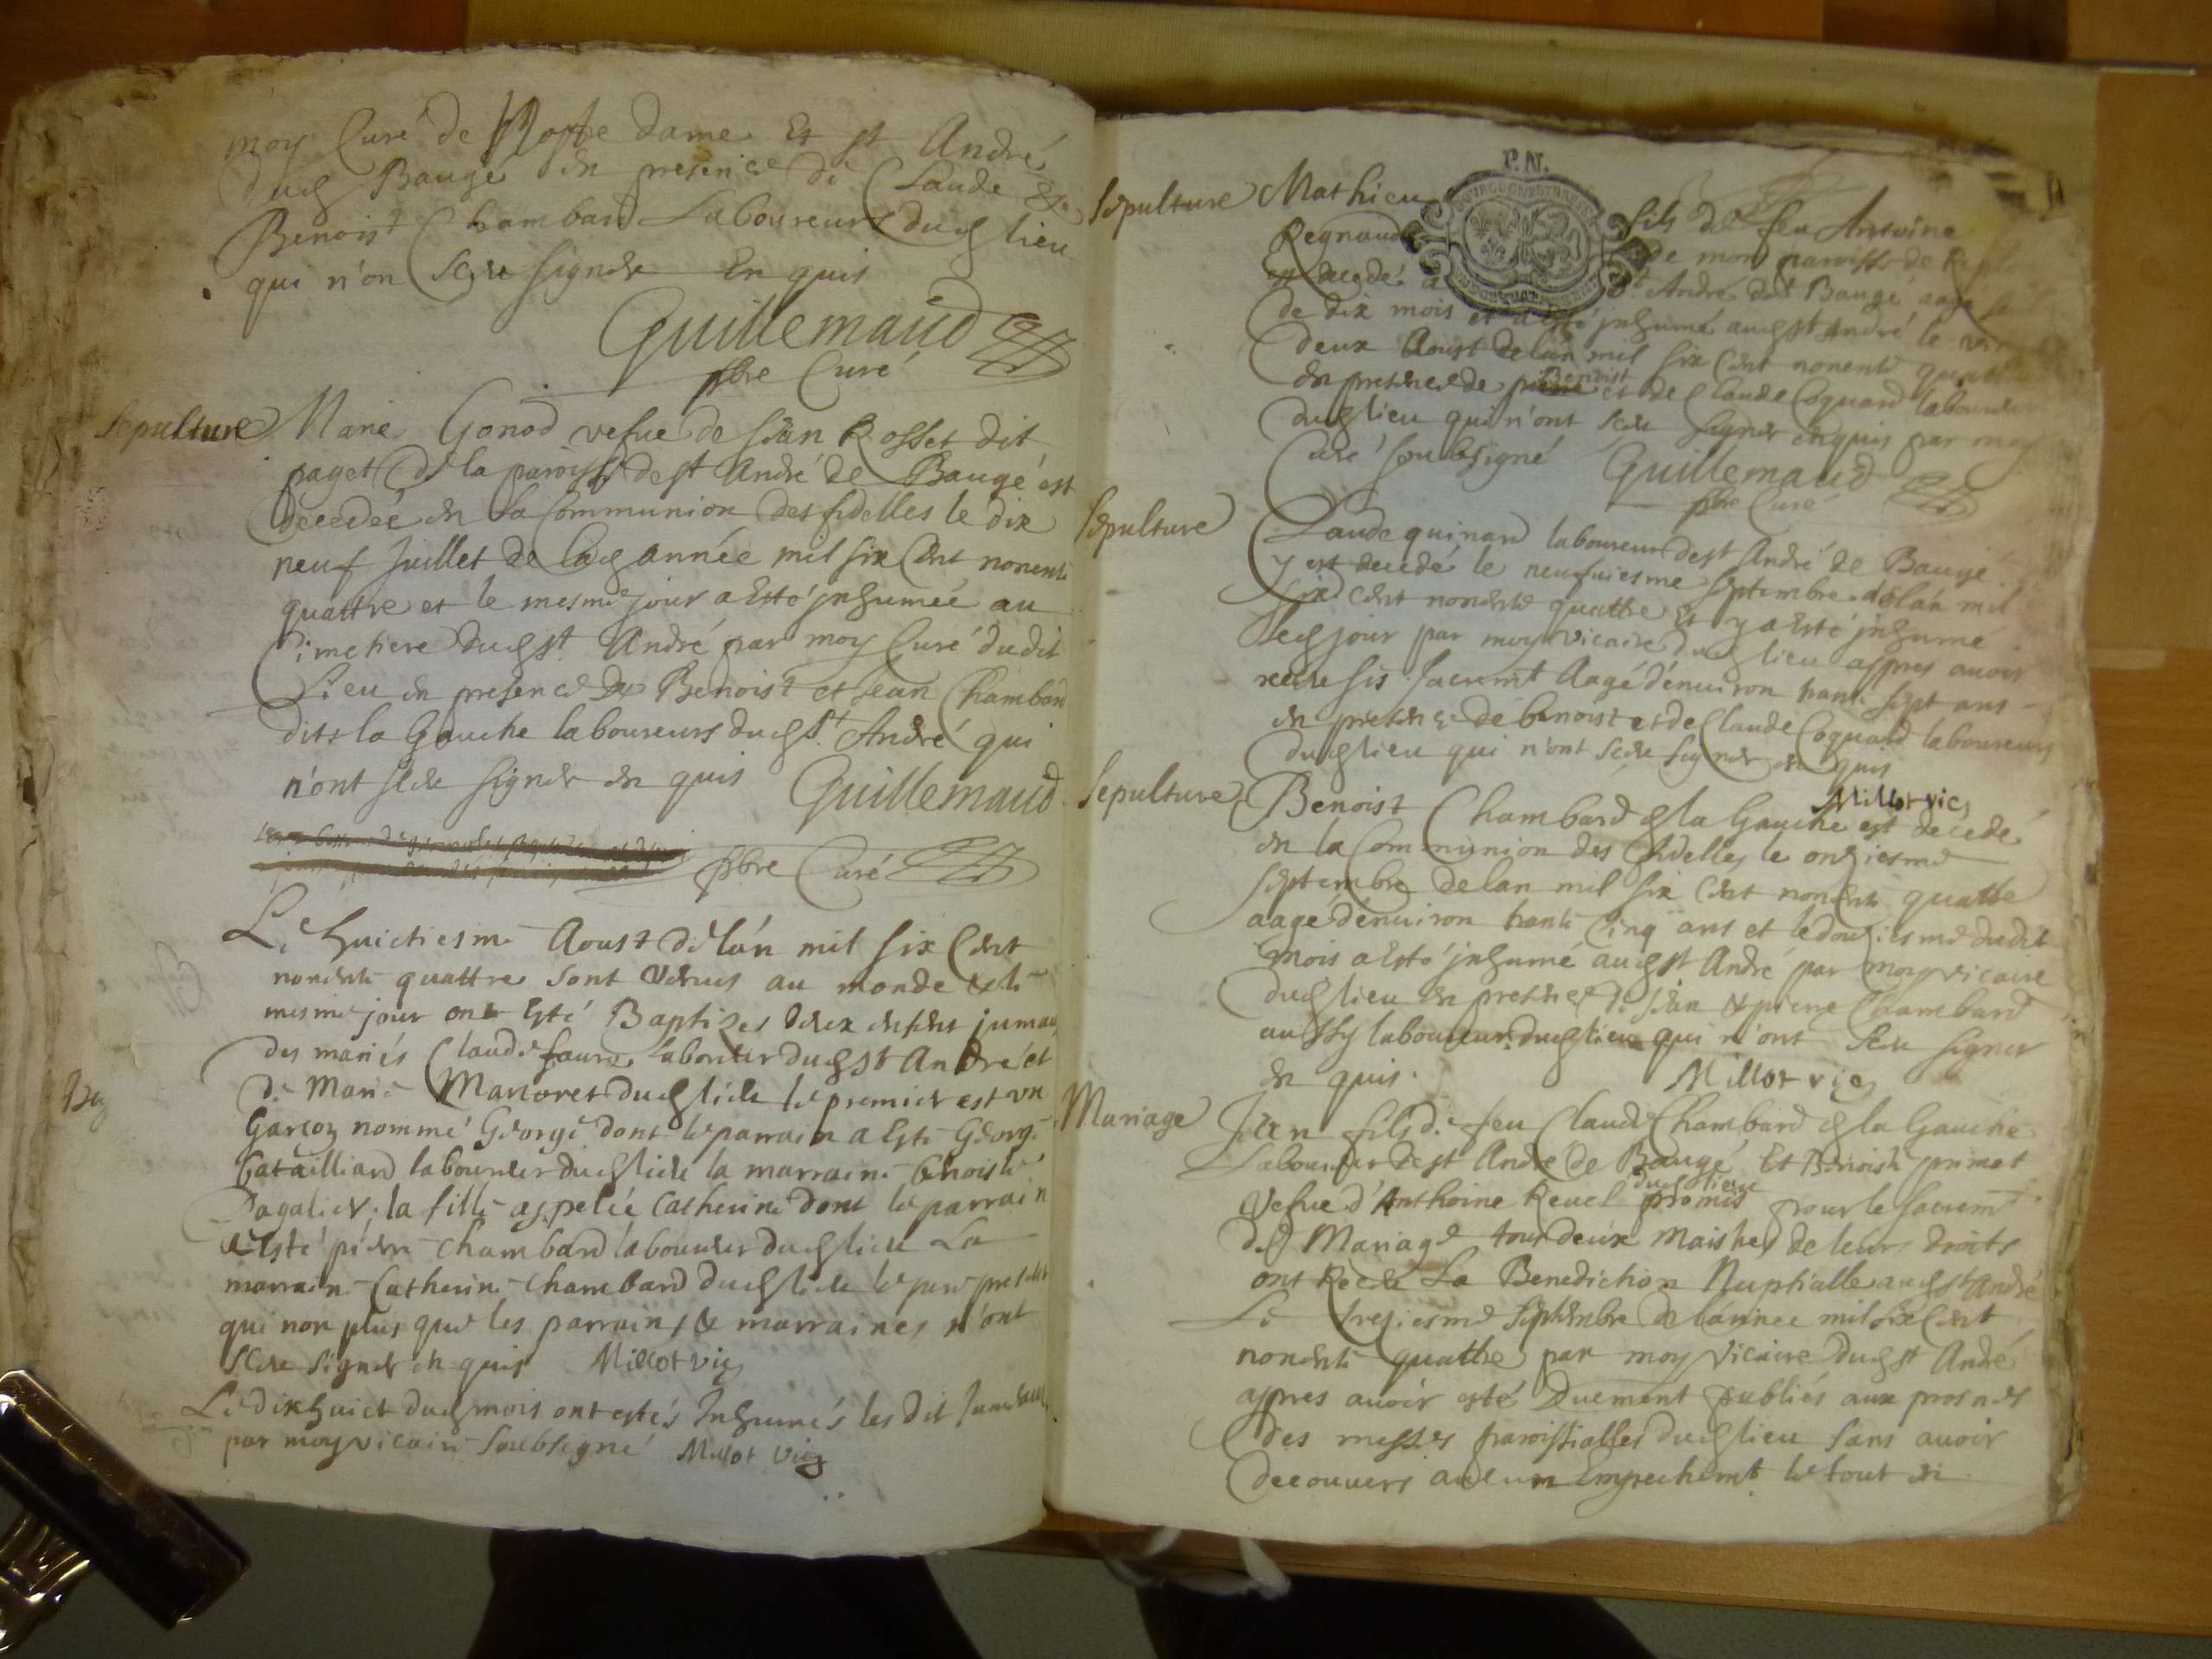 moy Curé de Nostre dame Et st André
dud Baugé en presence de Claude &
Benoist Chambard Laboureurs dud lieu
qui n'on sceu signer Enquis
Guillemaud
pbre Curé
Sepulture Marie Gonod vefue de Jean Rosset dit
paget de la paroisse de st André de Baugé est
decedée en La Communion des fidelles le dix
neuf Juillet de lad année mil six Cent nonente
quattre et le mesme jour a Esté jnhumée au
Cimetiere dud st. André par moy Curé dudit
Lieu en presence de Benoist et Jean Chambard
dits la Gauche laboureurs dud st. André qui
n'ont sceu signer enquis Guillemaud
pbre Curé
Le huictiesme Aoust de lán mil six Cent
nonente quattre sont Venus au monde & le
mesme jour ont Esté Baptizes deux enfent jumau
des mariés Claude faure laboureur dud st André et
de Marie Manoret dud lieu le premier est vn
Garcon nommé George dont le parrain a Esté George
batailliard laboureur dud lieu la marraine benoiste
Pagalier; la fille appelée Catherine dont le parrain
a Esté pierre chambard laboureur dud lieu La
marraine Catherine chambard dud lieu le pere present
qui non plus que les parrains & marraines n'ont
sceu signer enquis Millot vic
Le dixhuict dud mois ont estés Inhumés les dit Jumeaux
par moy vicaire soubsigné Millot vic
Bap
Sepulture Mathieu fils de feu Antoine
Regnaud de mon paroisse de
est decedé a st André de Baugé aagé
de dix mois et a esté jnhumé aud st André le
deux Aoust de lán mil six Cent nonente quattre
en presence de Benoist et de Claude Coquard laboureurs
dud lieu qui n'ont sceu signer enquis par moy
Curé soubsigné Guillemaud
pbre Curé
Sepulture Claude quinard laboureur de st André de Baugé
y est decedé le neufuiesme septembre de lán mil
six Cent nonente quattre Et y a Esté jnhumé
led jour par moy vicaire dud lieu appres auoir
receu ses sacremt Aagé dénuiron trante sept ans
en presence de benoist et de Claude Coquard laboureurs
dud lieu qui n'ont sceu signer enquis
Millot vic
Sepulture Benoist Chambard d la Gauche est decedé
en la Communion des fidelles le onziesme
septembre de lan mil six Cent nonente quattre
aagé dénuiron trante Cinq ans et le douziesme dudit
mois a Esté jnhumé aud st André par moy vicaire
dud lieu en presence de Jean & pierre Chambard
aussy laboureurs dud lieu qui n'ont sceu signer
enquis. Millot vic
Mariage Jean fils de feu Claude Chambard d la Gauche
Laboureur de st André de Baugé Et Benoiste primet
dud lieu
Vefue d'Anthoine Reuel promis pour le sacremt
de Mariage tous deux Maistres de leurs droits
ont Receu La Benediction Nuptialle aud st André
Le treziesme septembre de lánnee mil six Cent
nonente quattre par moy Vicaire dud st André
appres auoir esté Duement publiés aux prosnes
des messes paroissialles dud lieu sans auoir
decouuert aucun Empechemt le tout en
P.N.